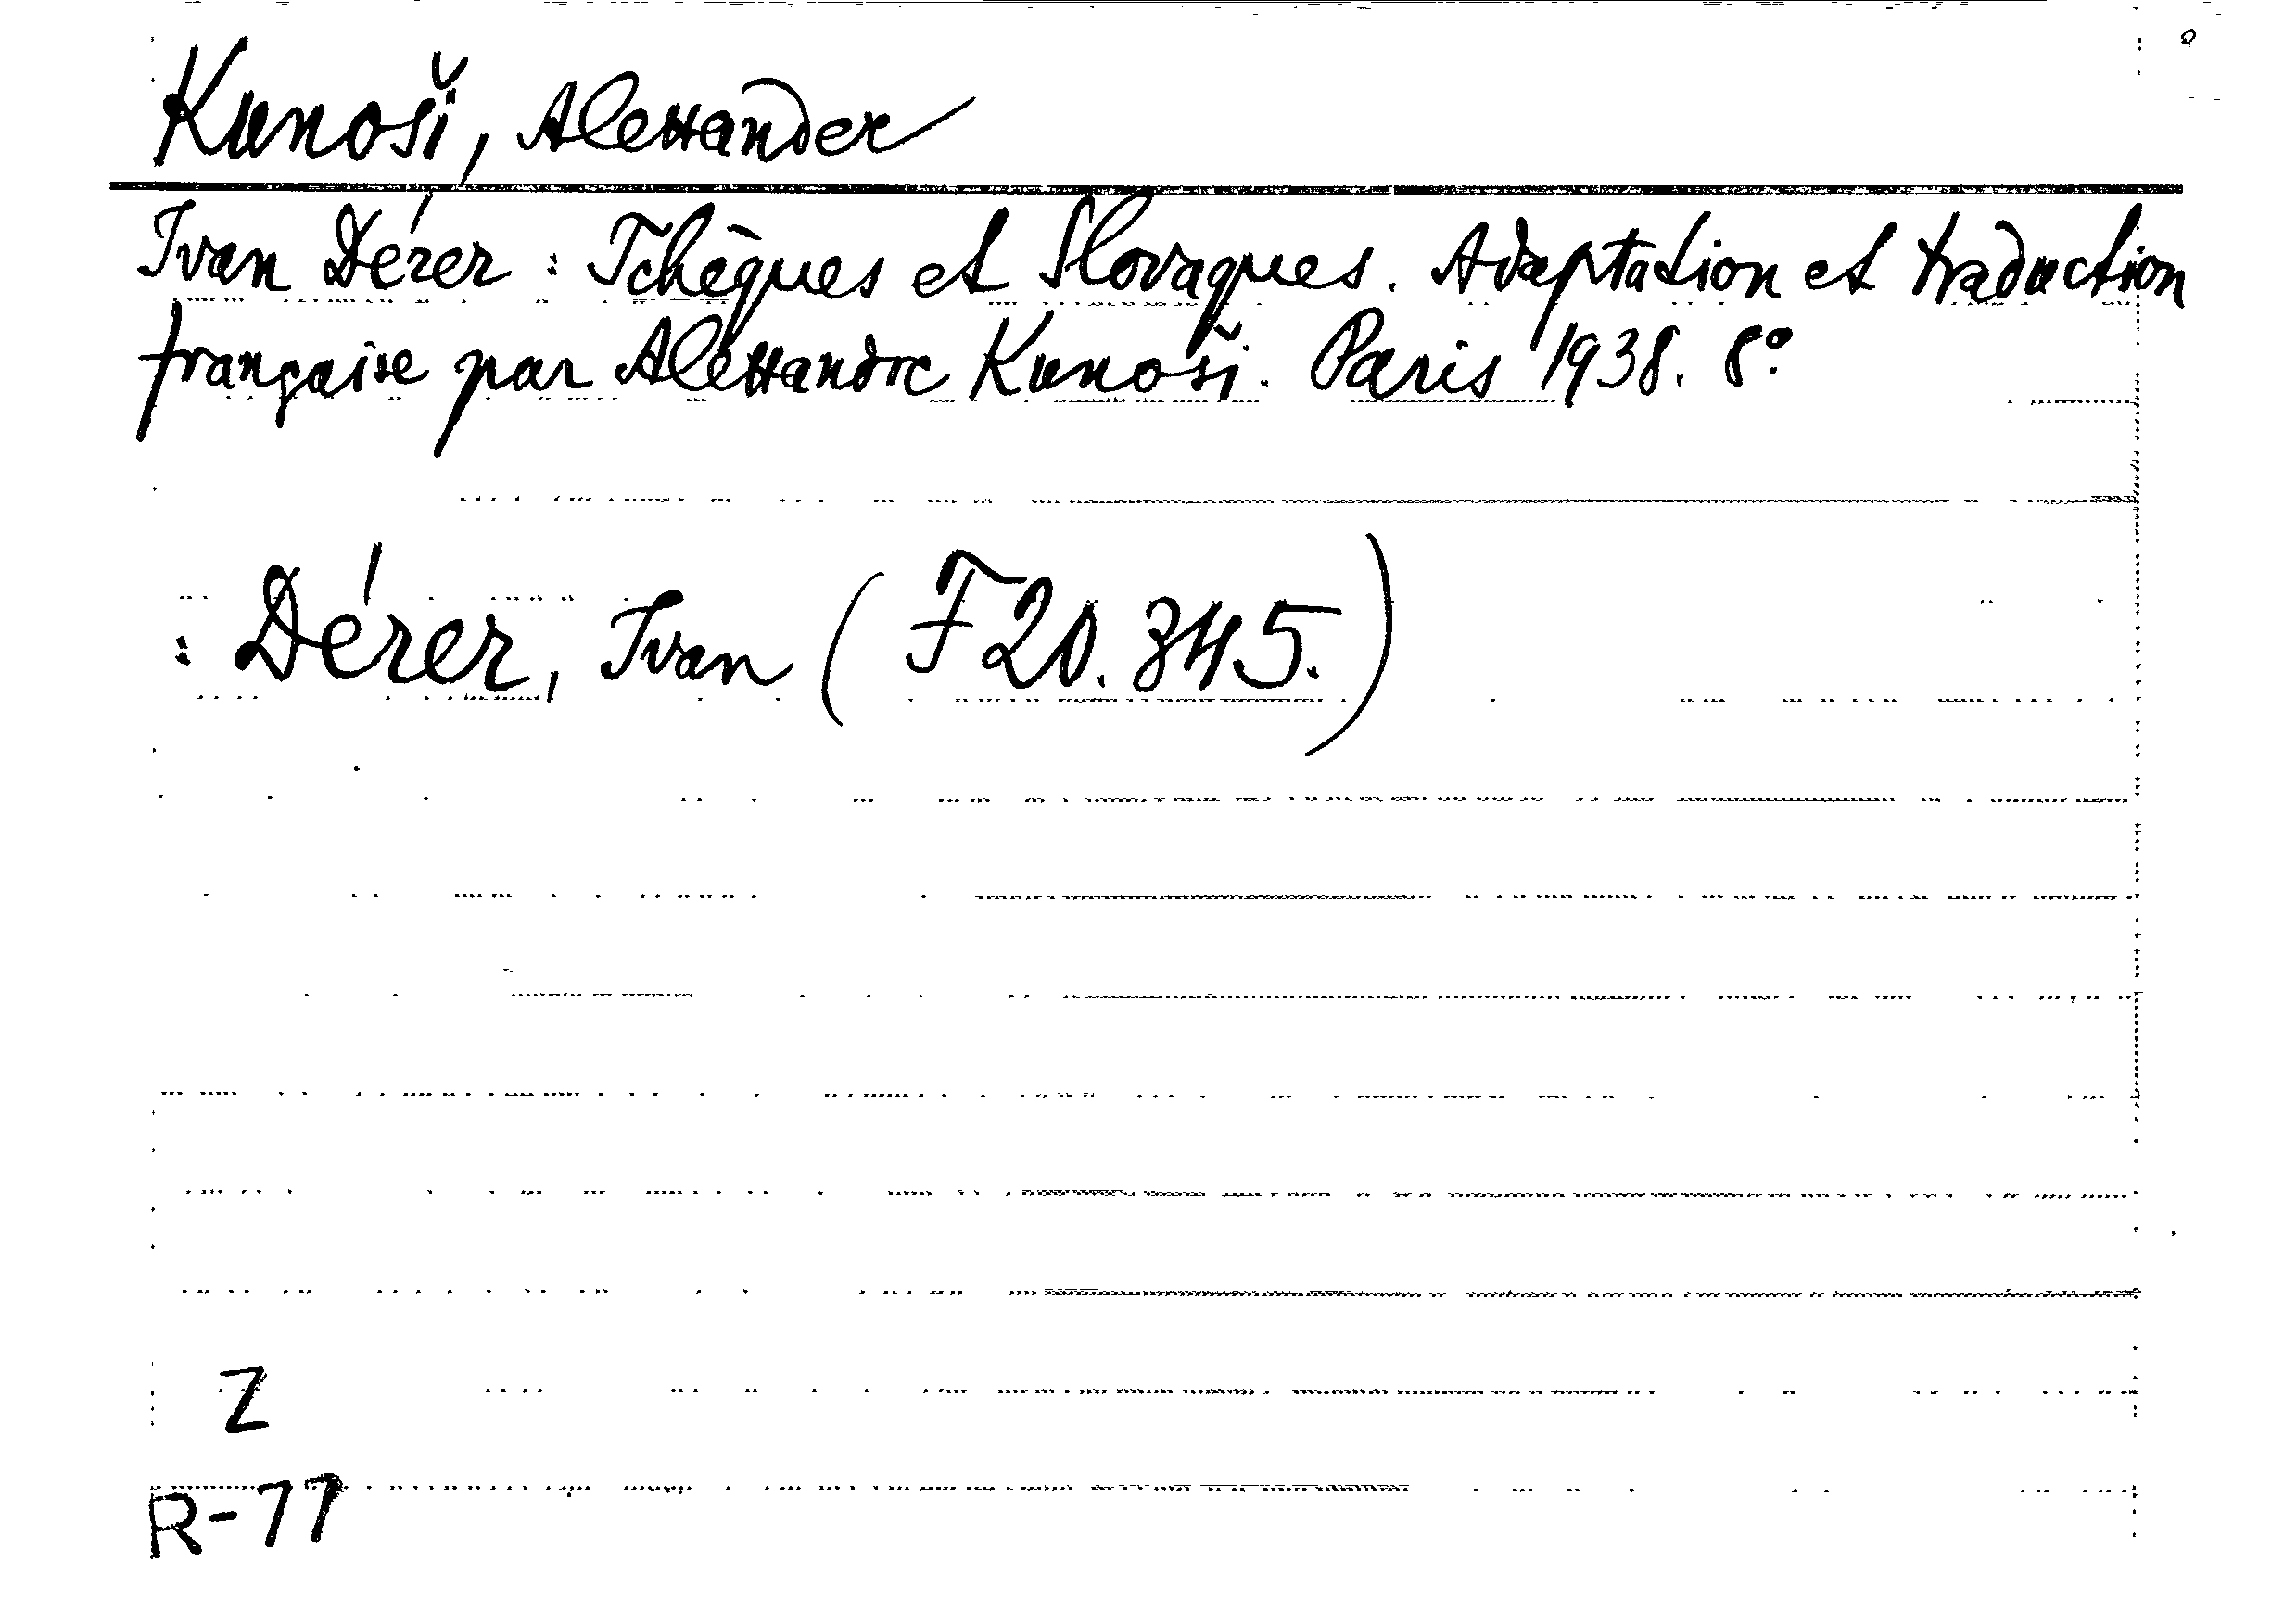 Kunoši, Alexander
Ivan Dérer : Tchèques et Slovaques. Adaptation et traduction
française par Alexandre Kunoši. Paris 1938. 8°
: Dérer, Ivan (F 20.345.)
Z
R-77